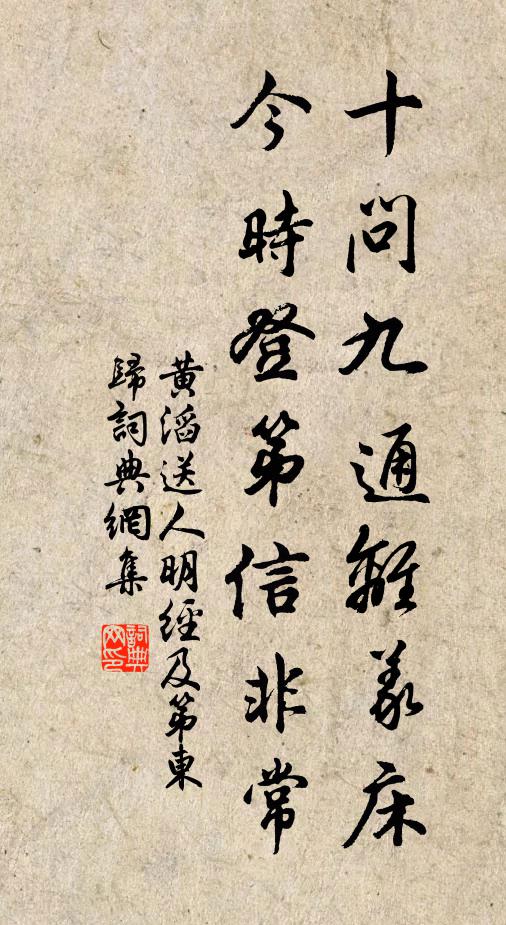 十問九通離義床
今時登第信非常
黃滔送人明經及第東
歸詞典網集
詞典網印